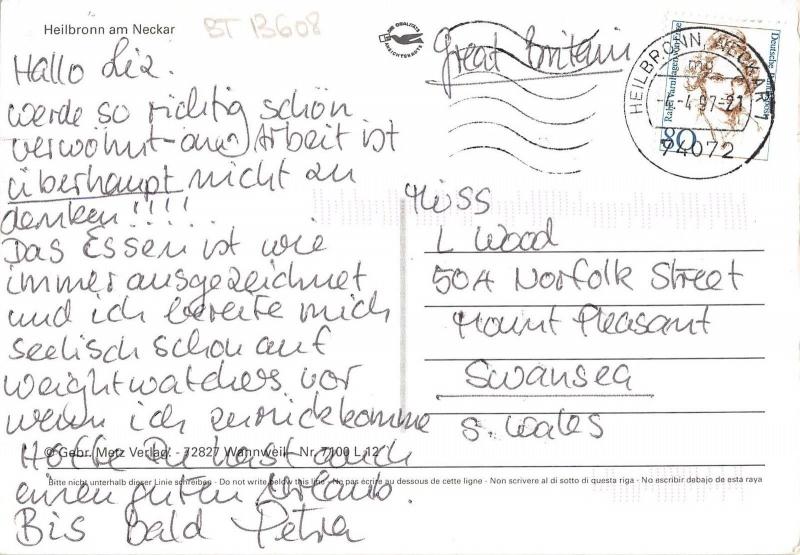 Heilbronn am Neckar
BT 13608
Hallo Liz.
werde so richtig schön
verwöhnt - an Arbeit ist
überhaupt nicht zu
denken!!!!!
Das Essen ist wie
immer ausgezeichnet
und ich bereite mich
seelisch schon auf
Weightwatchers vor
wenn ich zurückkomme
Hoffe Du hast auch
einen guten Urlaub.
Bis Bald Petra
© Gebr. Metz Verlag · 72827 Wannweil · Nr. 7100 L 12
Bitte nicht unterhalb dieser Linie schreiben - Do not write below this line - Ne pas écrire au dessous de cette ligne - Non scrivere al di sotto di questa riga - No escribir debajo de esta raya
DIE QUALITÄTS
ANSICHTSKARTE
Great Britain
HEILBRONN, NECKAR 1
mg
-4.97-21
74072
Deutsche Bundespost
Rahel Varnhagen von Ense
80
Miss
L Wood
50A Norfolk Street
Mount Pleasant
Swansea
S. Wales